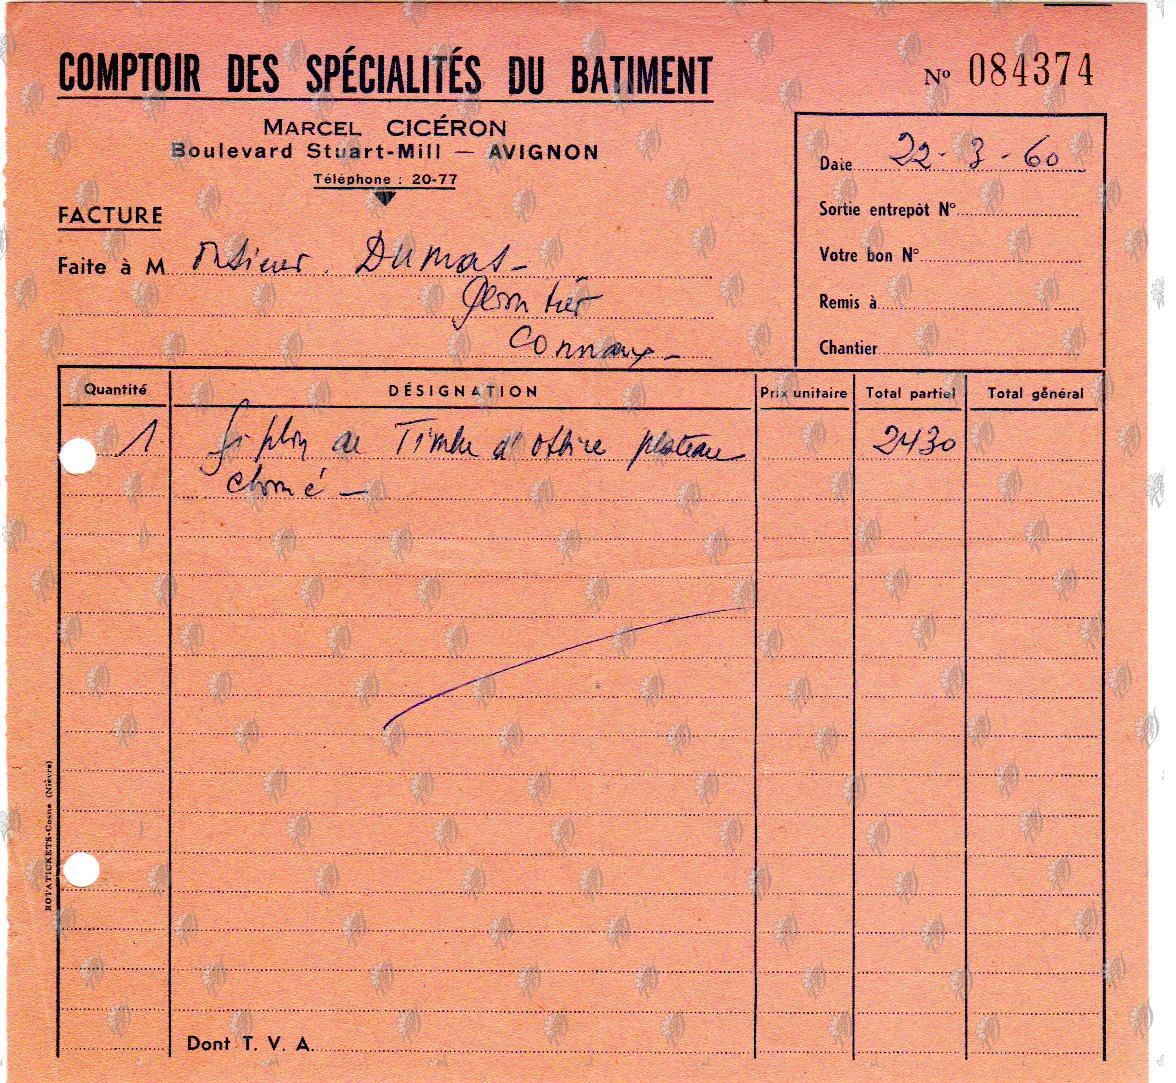 COMPTOIR DES SPÉCIALITÉS DU BATIMENT
Nº 084374
MARCEL CICÉRON
Boulevard Stuart-Mill — AVIGNON
Téléphone : 20-77
Date 22-3-60
Sortie entrepôt N°
Votre bon N°
Remis à
Chantier
FACTURE
Faite à M onsieur. Dumas-
Connaux-
Quantité DÉSIGNATION Prix unitaire Total partiel Total général
1 Siphon de Timbre d'office plateau 2430
chromé —
Dont T. V. A.
ROTATICKETS-Cosne (Nièvre)